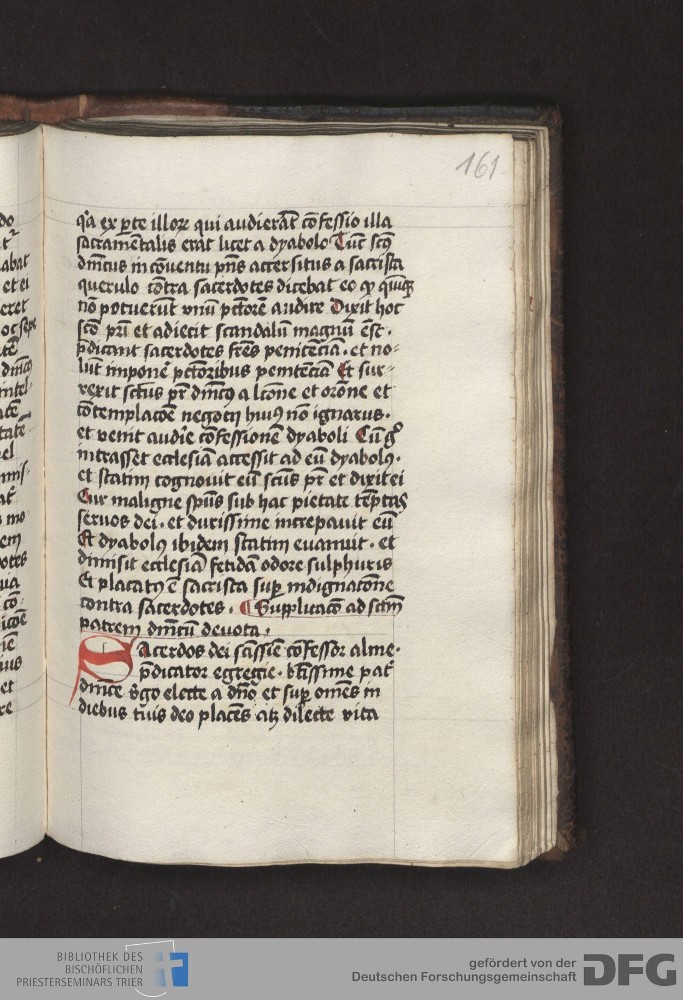 161
q̄a ex p̱te illoꝝ qui audierāt cōfessio illa
sacramētalis erat licet a dyabolo Tūc scūs
dn̄icus in cōuentu p̄ns accersitus a sacrista
querulo cōtra sacerdotes dicebat eo qꝫ
nō potuerūt vnū pctōrē audire Dixit hoc
scō pr̄i et adiecit scandalū magnū est.
p̄dicant sacerdotes fr̄es penitēciā. et no-
lūt imponē pctōribus penitēciā Et sur-
rexit scūs pr̄ dn̄icꝰ a lc̄one et or̄one et
cōtemplac̄oe negocij huiꝰ nō ignarus.
et venit audīe cōfessionē dyaboli Cū gͦ
intrasset ecclesiā accessit ad eū dyabolꝰ.
et statim cognouit eū scūs pr̄ et dixit ei
Cur maligne sp̄us sub hac pietate tēptas
seruos dei. et durissime increpauit eū
Et dyabolꝰ ibidem statim euanuit. et
dimisit ecclesiā fetidā odore sulphuris
Et placatꝰ ē sacrista suꝑ indignac̄one
contra sacerdotes. Supplicac̄o ad sc̄m
patrem dn̄icū deuota.
Sacerdos dei sc̄issīe cōfessor alme.
p̄dicator egregie. btīssime pat̄
dn̄ice v̊go electe a dn̄o et suꝑ om̄es in
diebus tuis deo placēs atꝫ dilecte vita
BIBLIOTHEK DES
BISCHÖFLICHEN
PRIESTERSEMINARS TRIER
gefördert von der
Deutschen Forschungsgemeinschaft
DFG